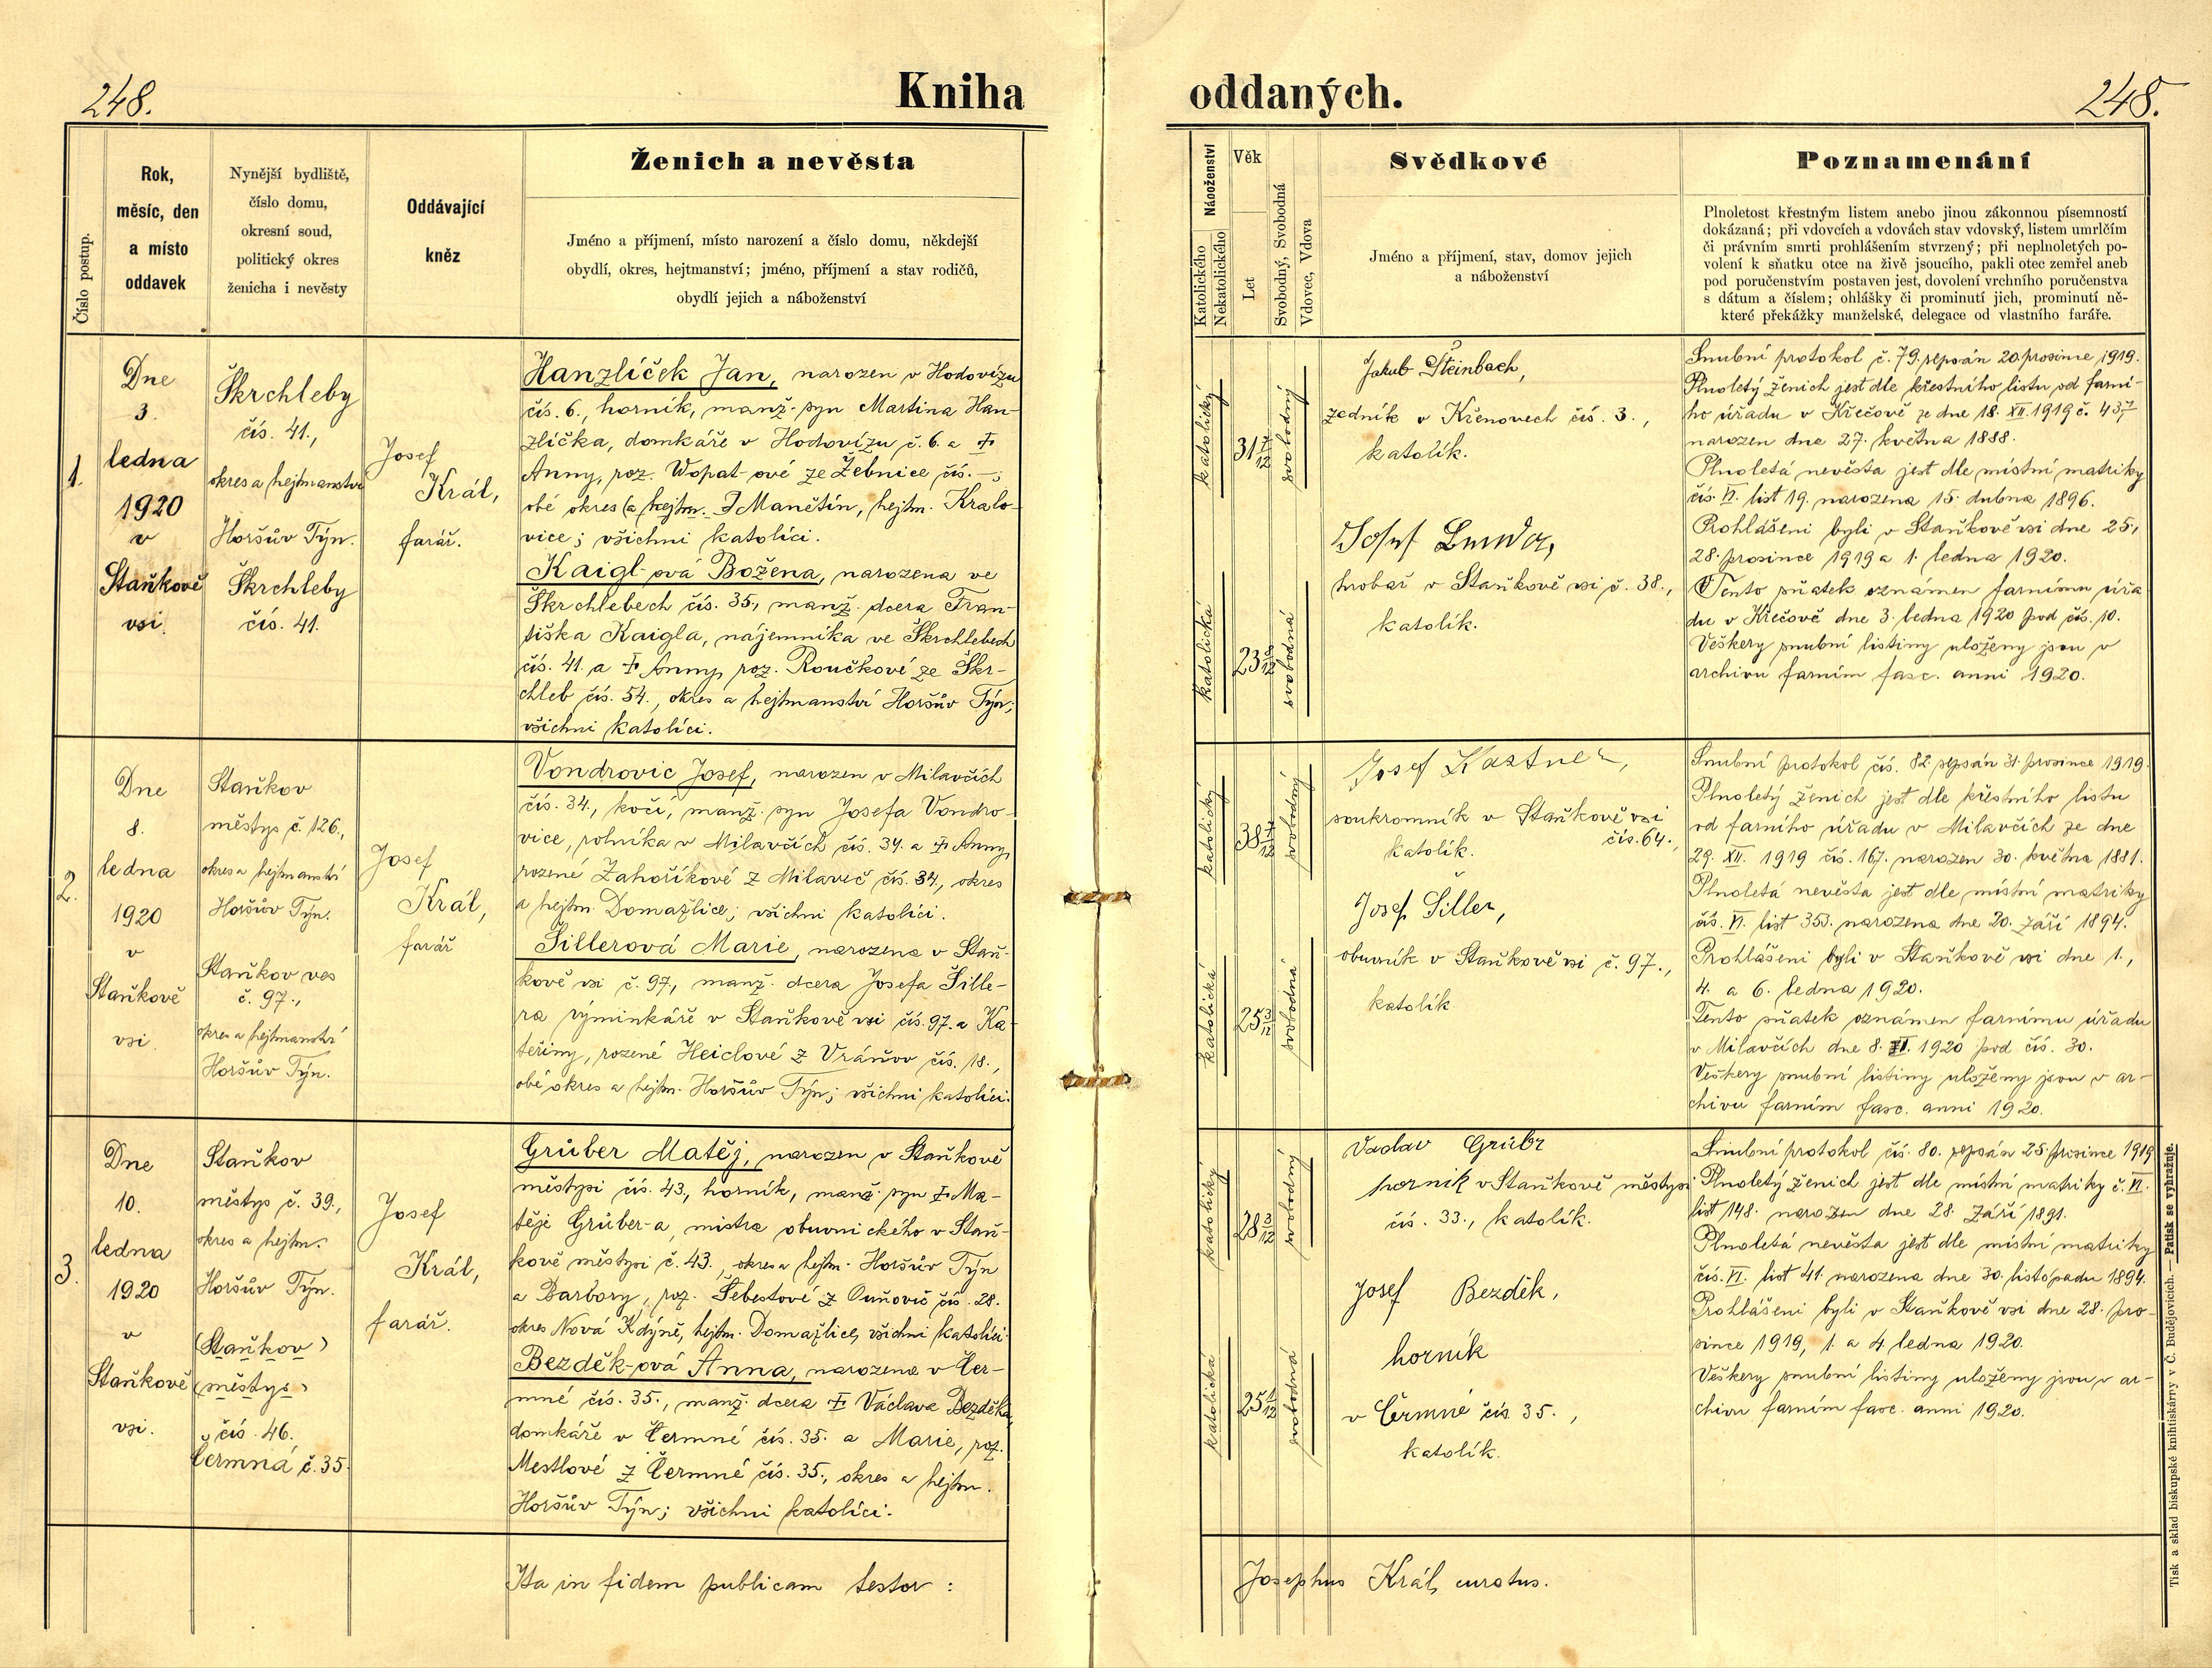 248.
Kniha
oddaných.
248.
Číslo postup.
Rok,
měsíc, den
a místo
oddavek
Nynější bydliště,
číslo domu,
okresní soud,
politický okres
ženicha i nevěsty
Oddávající
kněz
Ženich a nevěsta
Jméno a příjmení, místo narození a číslo domu, někdejší
obydlí, okres, hejtmanství; jméno, příjmení a stav rodičů,
obydlí jejich a náboženství
Náboženství
Katolického
Nekatolického
Věk
Let
Svobodný, Svobodná
Vdovec, Vdova
Svědkové
Jméno a příjmení, stav, domov jejich
a náboženství
Poznamenání
Plnoletost křestným listem anebo jinou zákonnou písemností
dokázaná; při vdovcích a vdovách stav vdovský, listem umrlčím
či právním smrti prohlášením stvrzený; při neplnoletých po-
volení k sňatku otce na živě jsoucího, pakli otec zemřel aneb
pod poručenstvím postaven jest, dovolení vrchního poručenstva
s dátum a číslem; ohlášky či prominutí jich, prominutí ně-
které překážky manželské, delegace od vlastního faráře.
1.
Dne
3.
ledna
1920
v
Staňkově
vsi.
Škrchleby
čís. 41.,
okres a hejtmanství
Horšův Týn.
Škrchleby
čís. 41.
Josef
Král,
farář.
Hanzlíček Jan, narozen v Hodovízu
čís. 6., horník, manž. syn Martina Han-
zlíčka, domkáře v Hodovízu č. 6. a †
Anny, roz. Wopat-ové ze Žebnice čís. —;
obé okres (a hejtm. Manětín, hejtm. Kralo-
vice; všichni katolíci.
Kaigl-ová Božena, narozena ve
Škrchlebech čís. 35., manž. dcera Fran-
tiška Kaigla, nájemníka ve Škrchlebech
čís. 41. a † Anny, roz. Roučkové ze Škr-
chleb čís. 54., okres a hejtmanství Horšův Týn;
všichni katolíci.
katolický
31 7/12
svobodný
katolická
23 8/12
svobodná
Jakub Šteinbach,
zedník v Křenovech čís. 3.,
katolík.
Josef
hrobař v Staňkově vsi č. 38.,
katolík.
Snubní protokol č. 79. sepsán 20. prosince 1919.
Plnoletý ženich jest dle křestního listu od farní-
ho úřadu v Křečově ze dne 18. XII. 1919 č. 437
narozen dne 27. května 1888.
Plnoletá nevěsta jest dle místní matriky
čís. VI. list 19. narozena 15. dubna 1896.
Prohlášeni byli v Staňkově vsi dne 25,
28. prosince 1919 a 1. ledna 1920.
Tento sňatek oznámen farnímu úřa-
du v Křečově dne 3. ledna 1920 pod čís. 10.
Veškery snubní listiny uloženy jsou v
archivu farním fasc. anni 1920.
2.
Dne
8.
ledna
1920
v
Staňkově
vsi.
Staňkov
městys č. 126.,
okres a hejtmanství
Horšův Týn.
Staňkov ves
č. 97.,
okres a hejtmanství
Horšův Týn.
Josef
Král,
farář
Vondrovic Josef, narozen v Milavčích
čís. 34., kočí, manž. syn Josefa Vondro-
vice, rolníka v Milavčích čís. 34. a † Anny,
rozené Zahoříkové z Milavč čís. 34., okres
a hejtm. Domažlice; všichni katolíci.
Šillerová Marie, narozena v Staň-
kově vsi č. 97, manž. dcera Josefa Šille-
ra výminkáře v Staňkově vsi čís. 97. a Ka-
teřiny, rozené Heiclové z Vránov čís. 18.,
obé okres a hejtm. Horšův Týn; všichni katolíci.
katolický
38 7/12
svobodný
katolická
25 3/12
svobodná
Josef Kastner,
soukromník v Staňkově vsi
čís. 64.,
katolík.
Josef Šiller,
obuvník v Staňkově vsi č. 97.,
katolík
Snubní protokol čís. 82. sepsán 31. prosince 1919.
Plnoletý ženich jest dle křestního listu
od farního úřadu v Milavčích ze dne
29. XII. 1919 čís. 167. narozen 30. května 1881.
Plnoletá nevěsta jest dle místní matriky
čís. VI. list 353. narozena dne 20. září 1894.
Prohlášeni byli v Staňkově vsi dne 1.,
4. a 6. ledna 1920.
Tento sňatek oznámen farnímu úřadu
v Milavčích dne 8. I. 1920 pod čís. 30.
Veškery snubní listiny uloženy jsou v ar-
chivu farním fasc. anni 1920.
3.
Dne
10.
ledna
1920
v
Staňkově
vsi.
Staňkov
městys č. 39.,
okres a hejtm.
Horšův Týn.
(Staňkov)
(městys)
čís. 46.
Čermná č. 35.
Josef
Král,
farář.
Grůber Matěj, narozen v Staňkově
městysi čís. 43., horník, manž. syn † Ma-
těje Grůber-a, mistra obuvnického v Staň-
kově městysi č. 43., okres a hejtm. Horšův Týn
a Barbory, roz. Šebestové z Ouňovic čís. 28.
okres Nová Kdýně, hejtm. Domažlice, všichni katolíci.
Bezděk-ová Anna, narozena v Čer-
mné čís. 35., manž. dcera † Václava Bezděka,
domkáře v Čermné čís. 35. a Marie, roz.
Mestlové z Čermné čís. 35., okres a hejtm.
Horšův Týn; všichni katolíci.
katolický
28 3/12
svobodný
katolická
25 1/12
svobodná
Vaclav Grůbr
horník v Staňkově městysi
čís. 33., katolík.
Josef Bezděk,
horník
v Čermné čís. 35.,
katolík.
Snubní protokol čís. 80. sepsán 25. prosince 1919
Plnoletý ženich jest dle místní matriky č. VI.
list 148. narozen dne 28. září 1891.
Plnoletá nevěsta jest dle místní matriky
čís. VI. list 41. narozena dne 30. listopadu 1894.
Prohlášeni byli v Staňkově vsi dne 28. pro-
since 1919, 1. a 4. ledna 1920.
Veškery snubní listiny uloženy jsou v ar-
chivu farním fasc. anni 1920.
Ita in fidem publicam testor :
Josephus Král, curatus.
Tisk a sklad biskupské knihtiskárny v Č. Budějovicích. — Patisk se vyhražuje.